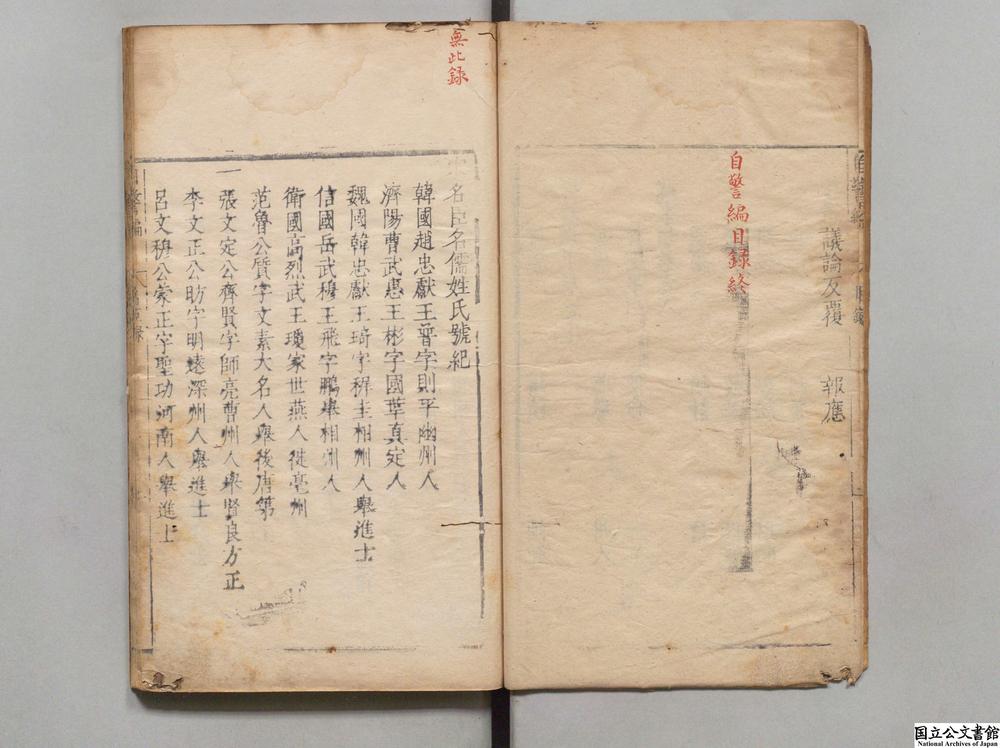 議論反覆　報應
自警編目録終
無此録
名臣名儒姓氏號紀
韓國趙忠獻王普字則平幽州人
濟陽曹武惠王彬字國華真定人
魏國韓忠獻王琦字穉圭相州人舉進士
信國岳武穆王飛字鵬舉相州人
衛國高烈武王瓊家世燕人徙亳州
范魯公質字文素大名人舉後唐第
張文定公齊賢字師亮曹州人舉賢良方正
李文正公昉字明遠深州人舉進士
呂文穆公蒙正字聖功河南人舉進士
国立公文書館
National Archives of Japan